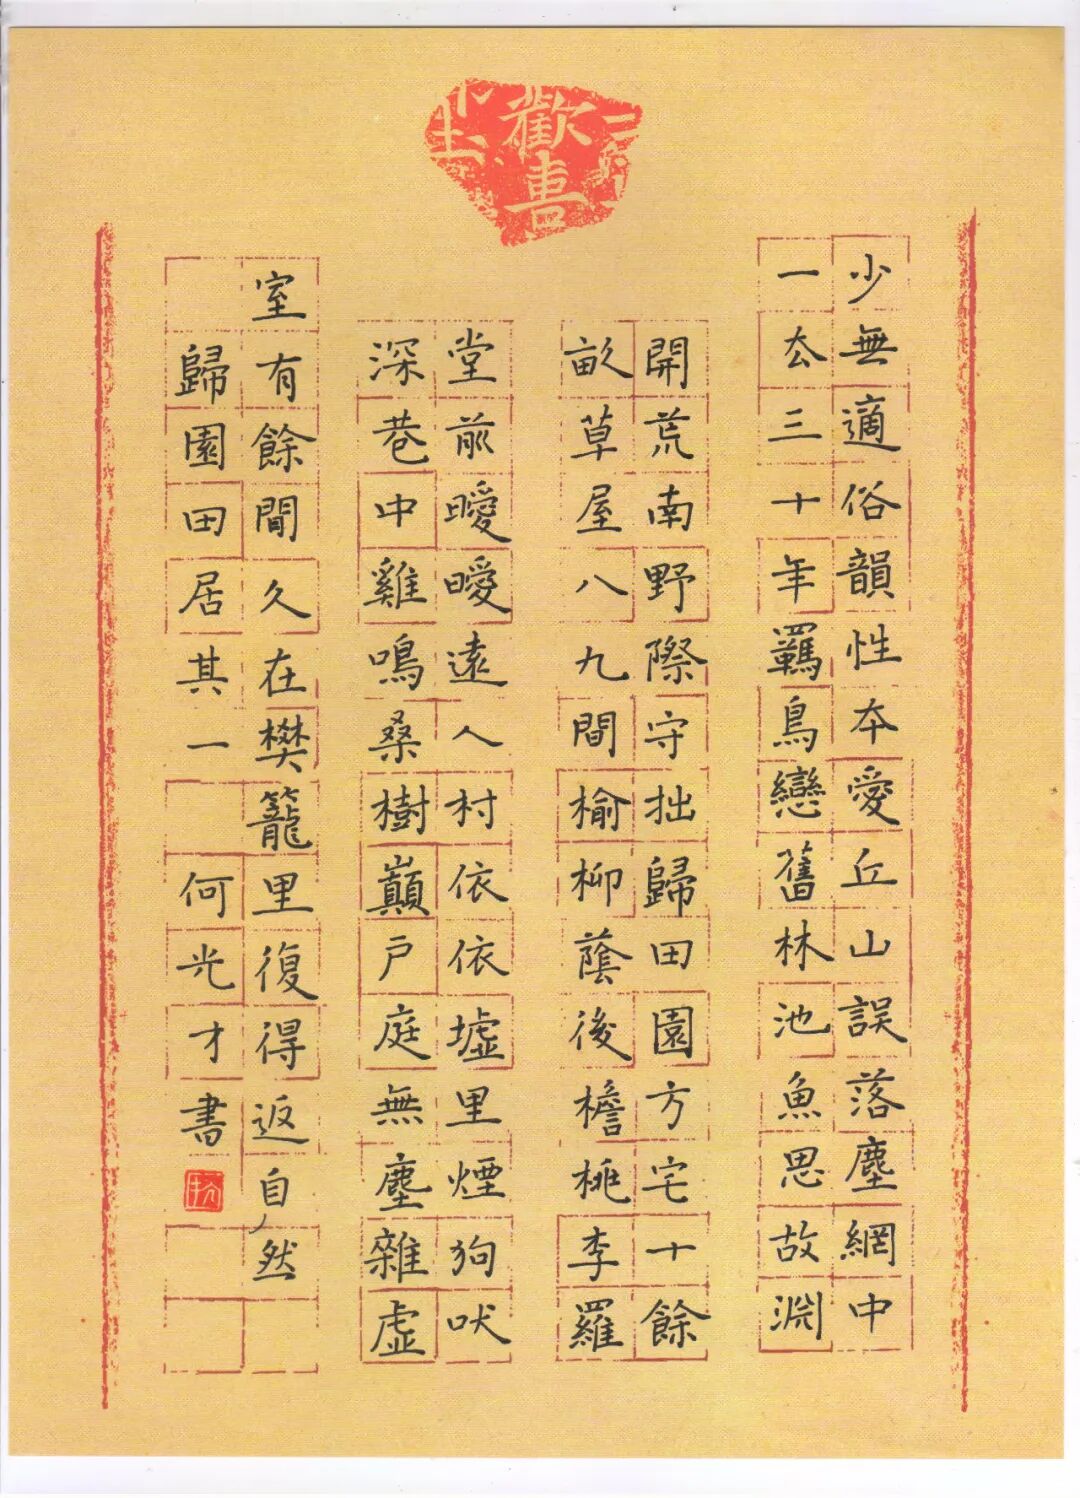 歡喜
少無適俗韻性本愛丘山誤落塵網中
一去三十年羈鳥戀舊林池魚思故淵
開荒南野際守拙歸田園方宅十餘
畝草屋八九間榆柳蔭後檐桃李羅
堂前曖曖遠人村依依墟里煙狗吠
深巷中雞鳴桑樹巔戶庭無塵雜虛
室有餘閒久在樊籠里復得返自然
歸園田居其一 何光才書